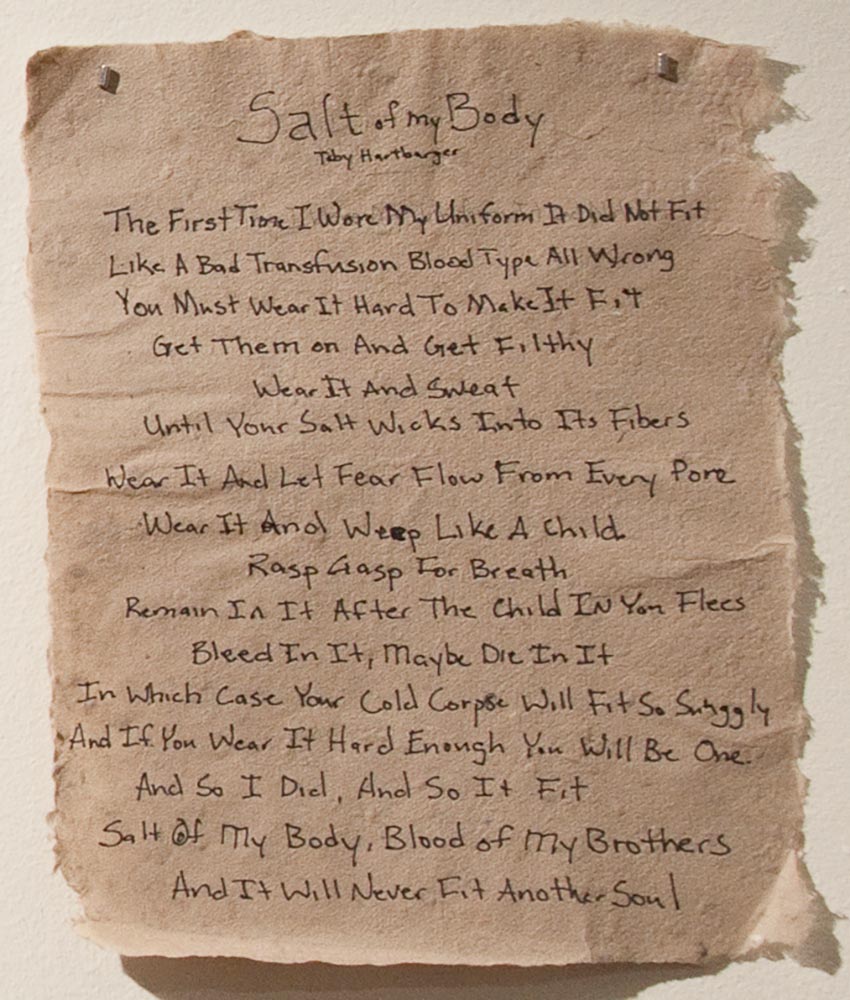 Salt of my Body
Toby Hartbarger
The First Time I Wore My Uniform It Did Not Fit
Like A Bad Transfusion Blood Type All Wrong
You Must Wear It Hard To Make It Fit
Get Them on And Get Filthy
Wear It And Sweat
Until Your Salt Wicks Into Its Fibers
Wear It And Let Fear Flow From Every Pore
Wear It And Weep Like A Child
Rasp Gasp For Breath
Remain In It After The Child IN You Flees
Bleed In It, Maybe Die In It
In Which Case Your Cold Corpse Will Fit So Snuggly
And If You Wear It Hard Enough You Will Be One.
And So I Did, And So It Fit
Salt Of My Body, Blood of My Brothers
And It Will Never Fit Another Soul